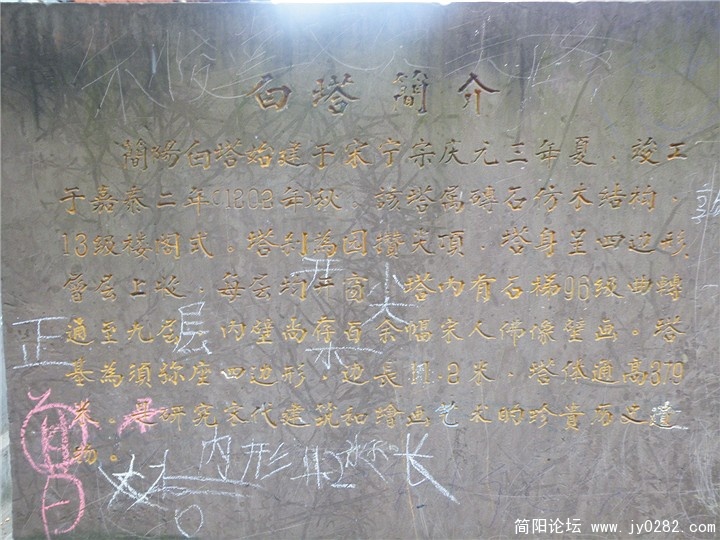 白塔简介
简阳白塔始建于宋宁宗庆元三年夏，竣工
于嘉泰二年(1202年)秋。该塔属磚石仿木结构，
13级楼阁式。塔刹為圆攒尖頂，塔身呈四边形
層层上收，每层均开窗 塔内有石梯96级曲轉
通至九层 内壁尚存百余幅宋人佛像壁画。塔
基為須弥座四边形，边長11.2米，塔体通高379
米。是研究宋代建筑和繪画艺术的珍貴历史遗
物。
正 层
开 尖
内形
长
简阳论坛 www.jy0282.com